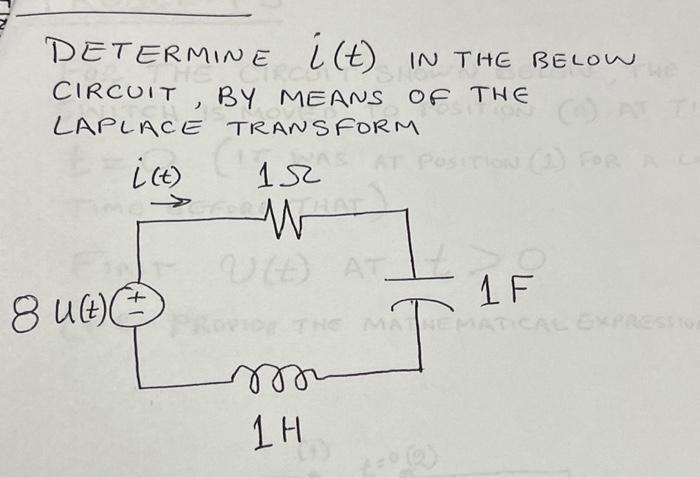 DETERMINE i(t) IN THE BELOW
CIRCUIT, BY MEANS OF THE
LAPLACE TRANSFORM
i(t) 1Ω
8 u(t) + -
1F
1H
t=0 (2)